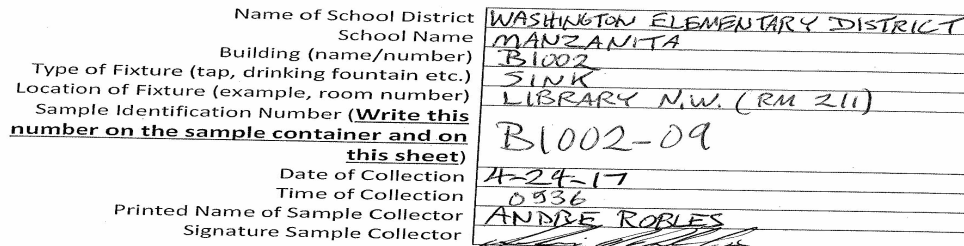 Name of School District WASHINGTON ELEMENTARY DISTRICT
School Name MANZANITA
Building (name/number) B1002
Type of Fixture (tap, drinking fountain etc.) SINK
Location of Fixture (example, room number) LIBRARY N.W. (RM 211)
Sample Identification Number (Write this
number on the sample container and on B1002-09
this sheet)
Date of Collection 4-24-17
Time of Collection 0936
Printed Name of Sample Collector ANDRE ROBLES
Signature Sample Collector